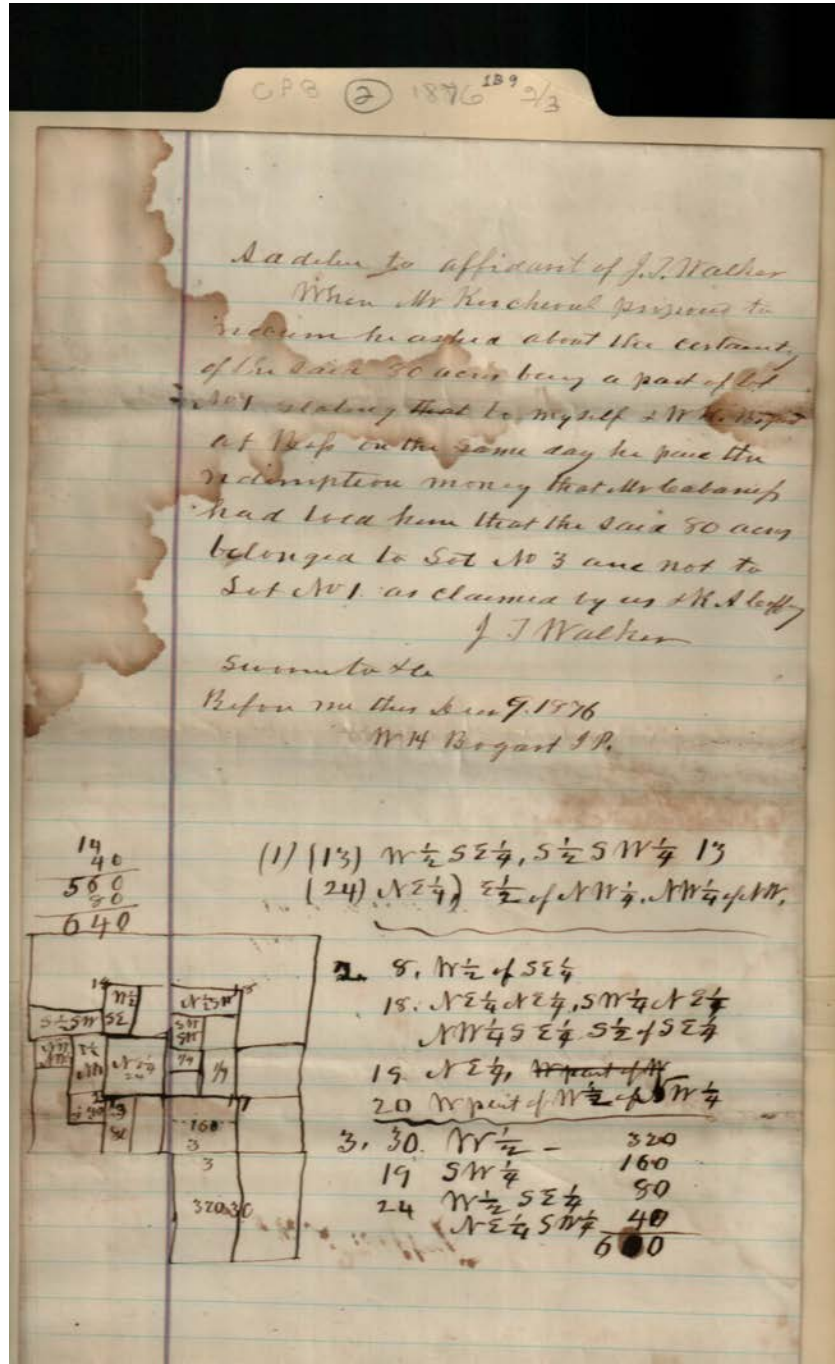 CPB 2 1876 1B9 2/3
to affidavit of J. T. Walker
When Mr Kercheval proposed to
redeem he asked about the certainty
of the said 80 acres being a part of Lot
No 1 stating that to myself & W H. Bogart
at on the same day he paid the
redemption money that Mr Cabaness
had toed him that the said 80 acres
belonged to Lot No 3 and not to
Lot No 1 as claimed by us & R A
J T Walker
Sworn to &c
Before me this Dec 9. 1876
W H Bogart J P.
14
40
560
80
640
(1) (13) W 1/2 S E 1/4, S 1/2 S W 1/4 13
(24) N E 1/4) E 1/2 of N W 1/4. N W 1/4 of N W.
2. 8. W 1/2 of S E 1/4
18. N E 1/4 N E 1/4, S W 1/4 N E 1/4
N W 1/4 S E 1/4 S 1/2 of S E 1/4
19 N E 1/4, W part of W
20 W part of W 1/2 of N W 1/4
3. 30. W 1/2 - 320
19 S W 1/4 160
24 W 1/2 S E 1/4 80
N E 1/4 S W 1/4 40
600
W 1/2
N 1/2 S W
S 1/2 S W
S E
S W
S W
N E 1/4
24
19
160
3
3
320
30